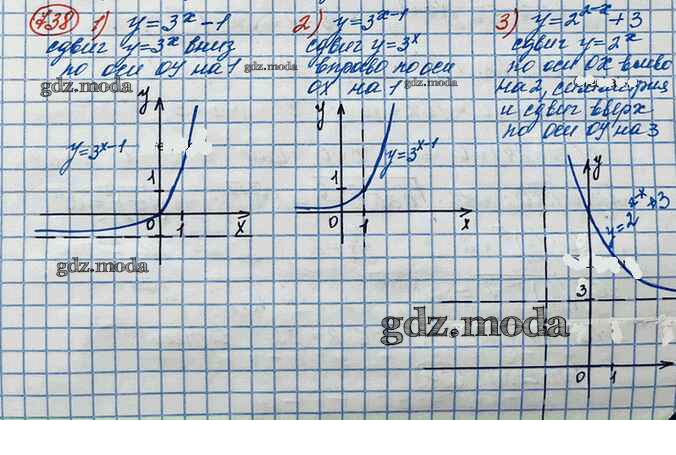 738 1) y=3ˣ-1
сдвиг y=3ˣ вниз
по оси OY на 1
gdz.moda
y
y=3ˣ⁻¹
1
0 1 x
gdz.moda
2) y=3ˣ⁻¹
сдвиг y=3ˣ
вправо по оси
OX на 1
gdz.moda
y
y=3ˣ⁻¹
1
0 1 x
3) y=2²⁻ˣ+3
сдвиг y=2ˣ
по оси OX влево
на 2,
и сдвиг вверх
по оси OY на 3
gdz.moda
y
3
gdz.moda
0 1